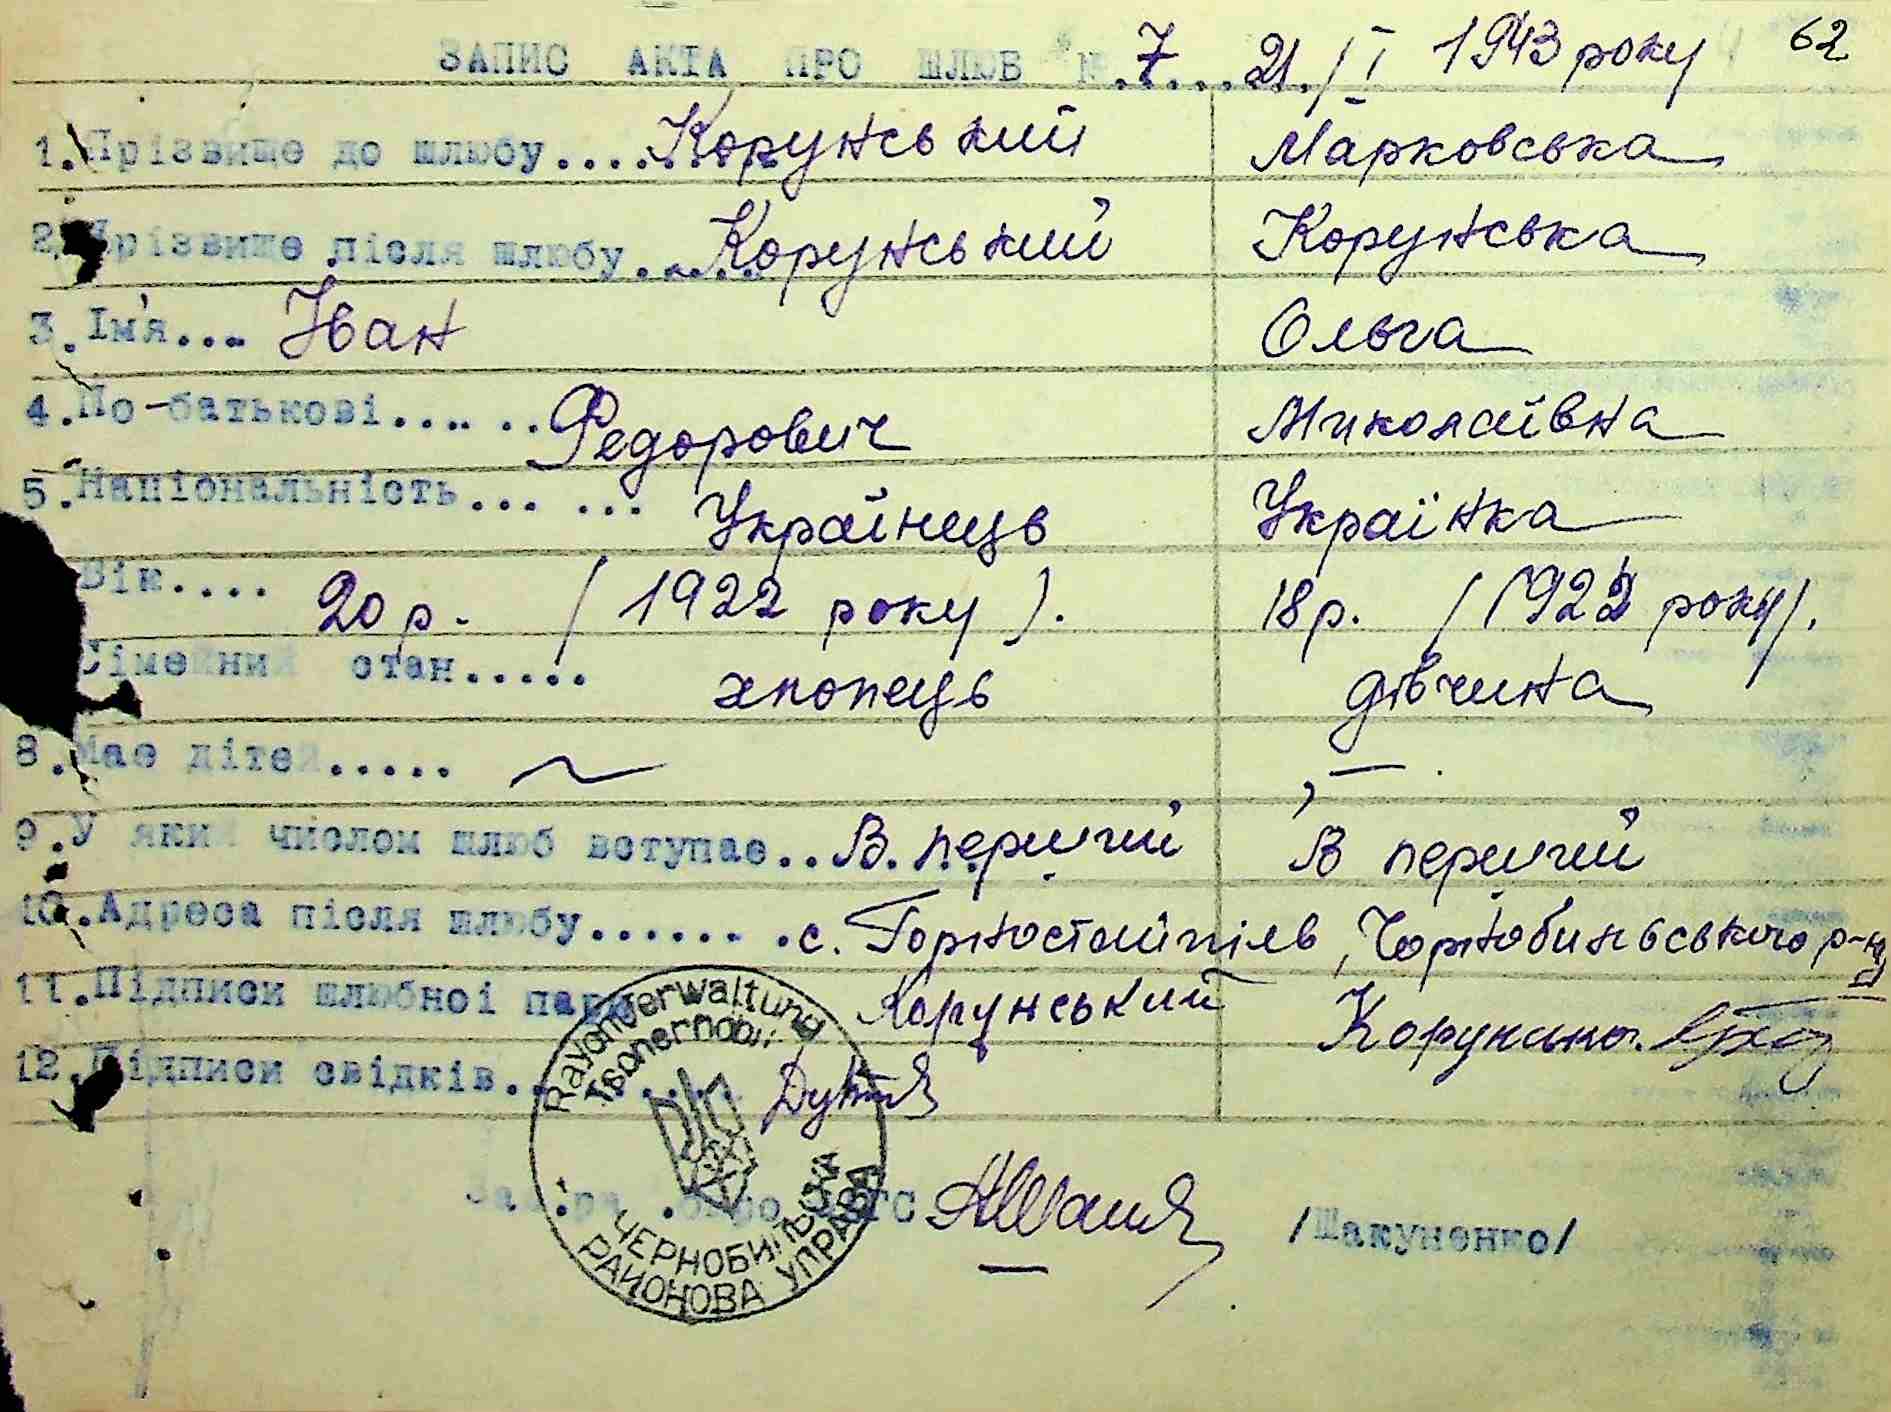 62
ЗАПИС АКТА ПРО ШЛЮБ № 7 21/I 1943 року
1. Прізвище до шлюбу.... Корунський Марковська
2. Прізвище після шлюбу.... Корунський Корунська
3. Ім'я... Іван Ольга
4. По-батькові.... .. Федорович Миколаївна
5. Національність... ... Українець Українка
Вік.... 20 р. (1922 року). 18 р. (1922 року).
Сімейний стан..... хлопець дівчина
8. Має дітей..... ~ —
9. У який числом шлюб вступає.. В. перший В перший
10. Адреса після шлюбу...... .с. Горностайпіль, Чорнобильського р-ну
11. Підписи шлюбної пари Корунський
12. Підписи свідків..
Rayonverwaltung
Tschernobil
ЧЕРНОБИЛЬСЬКА
РАЙОНОВА УПРАВА
Зав. ра .бюро ЗАГС /Шакуненко/